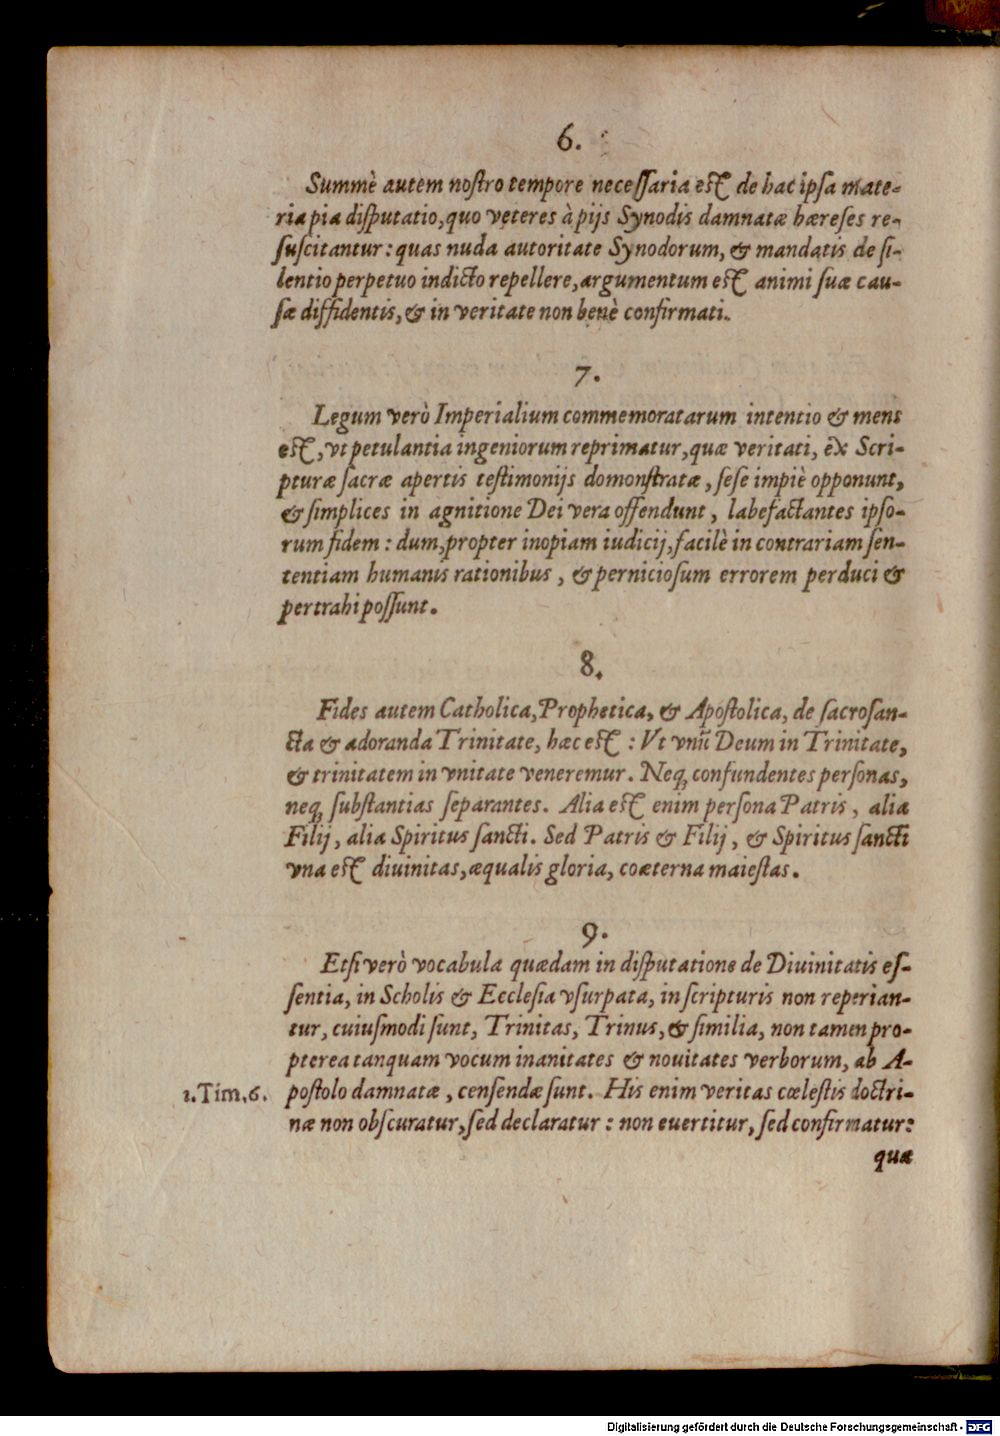 6.
Summè autem noſtro tempore neceſſaria eſt de hac ipſa mate-
ria pia diſputatio, quo veteres à pijs Synodis damnatæ hæreſes re-
ſuſcitantur: quas nuda autoritate Synodorum, & mandatis de ſi-
lentio perpetuo indicto repellere, argumentum eſt animi ſuæ cau-
ſæ diffidentis, & in veritate non benè confirmati.
7.
Legum verò Imperialium commemoratarum intentio & mens
eſt, vt petulantia ingeniorum reprimatur, quæ veritati, ex Scri-
pturæ ſacræ apertis teſtimonijs domonſtratæ, ſeſe impiè opponunt,
& ſimplices in agnitione Dei vera offendunt, labefactantes ipſo-
rum fidem: dum, propter inopiam iudicij, facilè in contrariam ſen-
tentiam humanis rationibus, & pernicioſum errorem perduci &
pertrahi poſſunt.
8.
Fides autem Catholica, Prophetica, & Apoſtolica, de ſacroſan-
cta & adoranda Trinitate, hæc eſt: Vt vnũ Deum in Trinitate,
& trinitatem in vnitate veneremur. Neq; confundentes perſonas,
neq; ſubſtantias ſeparantes. Alia eſt enim perſona Patris, alia
Filij, alia Spiritus ſancti. Sed Patris & Filij, & Spiritus ſancti
vna eſt diuinitas, æqualis gloria, coæterna maieſtas.
9.
Etſi verò vocabula quædam in diſputatione de Diuinitatis eſ-
ſentia, in Scholis & Eccleſia vſurpata, in ſcripturis non reperian-
tur, cuiuſmodi ſunt, Trinitas, Trinus, & ſimilia, non tamen pro-
pterea tanquam vocum inanitates & nouitates verborum, ab A-
1. Tim. 6. poſtolo damnatæ, cenſendæ ſunt. His enim veritas cœleſtis doctri-
næ non obſcuratur, ſed declaratur: non euertitur, ſed confirmatur:
quæ
Digitalisierung gefördert durch die Deutsche Forschungsgemeinschaft - DFG